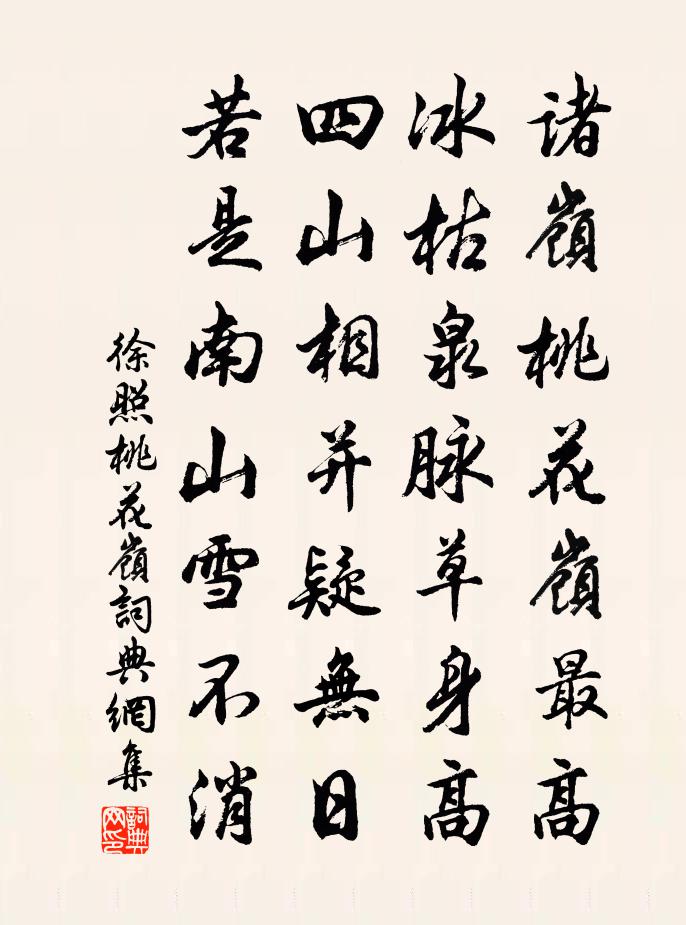 諸嶺桃花嶺最高
冰枯泉脉草身高
四山相并疑無日
若是南山雪不消
徐照桃花嶺詞典網集
詞典网印